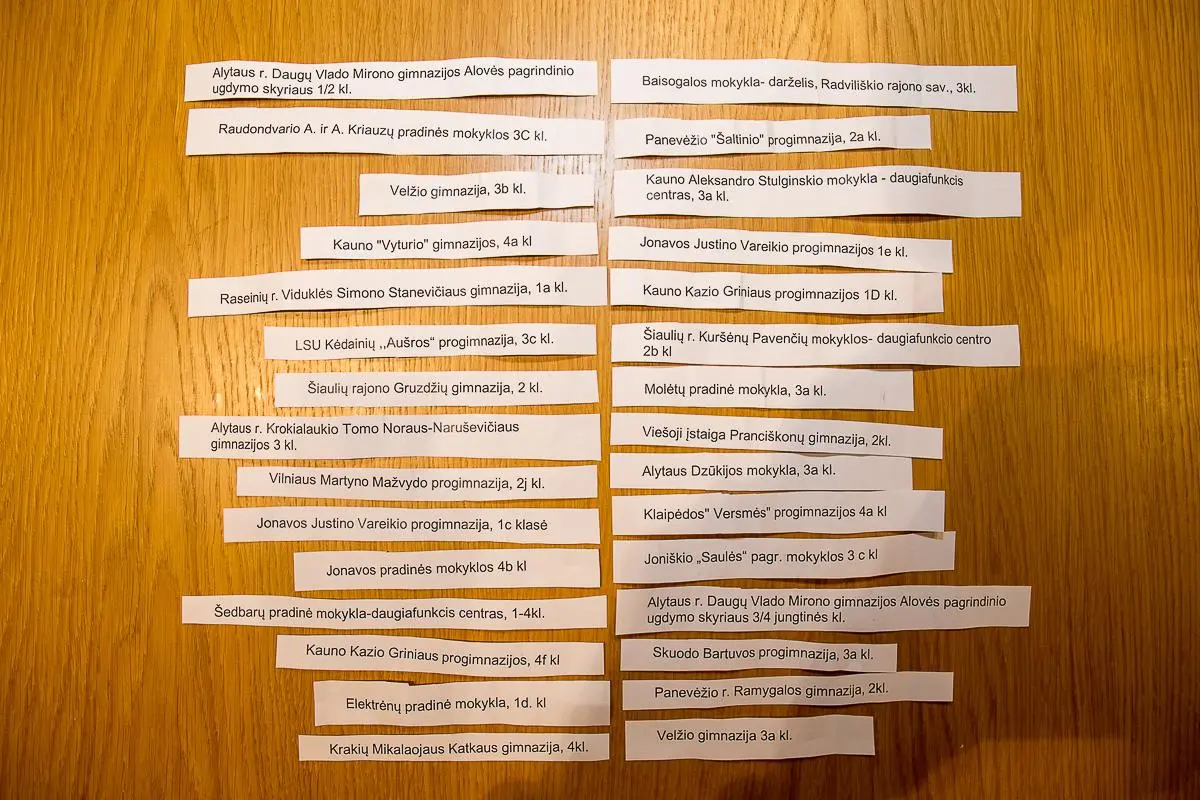 Alytaus r. Daugų Vlado Mirono gimnazijos Alovės pagrindinio
ugdymo skyriaus 1/2 kl.
Raudondvario A. ir A. Kriauzų pradinės mokyklos 3C kl.
Velžio gimnazija, 3b kl.
Kauno "Vyturio" gimnazijos, 4a kl
Raseinių r. Viduklės Simono Stanevičiaus gimnazija, 1a kl.
LSU Kėdainių ,,Aušros“ progimnazija, 3c kl.
Šiaulių rajono Gruzdžių gimnazija, 2 kl.
Alytaus r. Krokialaukio Tomo Noraus-Naruševičiaus
gimnazijos 3 kl.
Vilniaus Martyno Mažvydo progimnazija, 2j kl.
Jonavos Justino Vareikio progimnazija, 1c klasė
Jonavos pradinės mokyklos 4b kl.
Šedbarų pradinė mokykla-daugiafunkcis centras, 1-4kl.
Kauno Kazio Griniaus progimnazijos, 4f kl
Elektrėnų pradinė mokykla, 1d. kl
Krakių Mikalaojaus Katkaus gimnazija, 4kl.
Baisogalos mokykla- darželis, Radviliškio rajono sav., 3kl.
Panevėžio "Šaltinio" progimnazija, 2a kl.
Kauno Aleksandro Stulginskio mokykla - daugiafunkcis
centras, 3a kl.
Jonavos Justino Vareikio progimnazijos 1e kl.
Kauno Kazio Griniaus progimnazijos 1D kl.
Šiaulių r. Kuršėnų Pavenčių mokyklos- daugiafunkcio centro
2b kl
Molėtų pradinė mokykla, 3a kl.
Viešoji įstaiga Pranciškonų gimnazija, 2kl.
Alytaus Dzūkijos mokykla, 3a kl.
Klaipėdos" Versmės" progimnazijos 4a kl
Joniškio „Saulės“ pagr. mokyklos 3 c kl
Alytaus r. Daugų Vlado Mirono gimnazijos Alovės pagrindinio
ugdymo skyriaus 3/4 jungtinės kl.
Skuodo Bartuvos progimnazija, 3a kl.
Panevėžio r. Ramygalos gimnazija, 2kl.
Velžio gimnazija 3a kl.